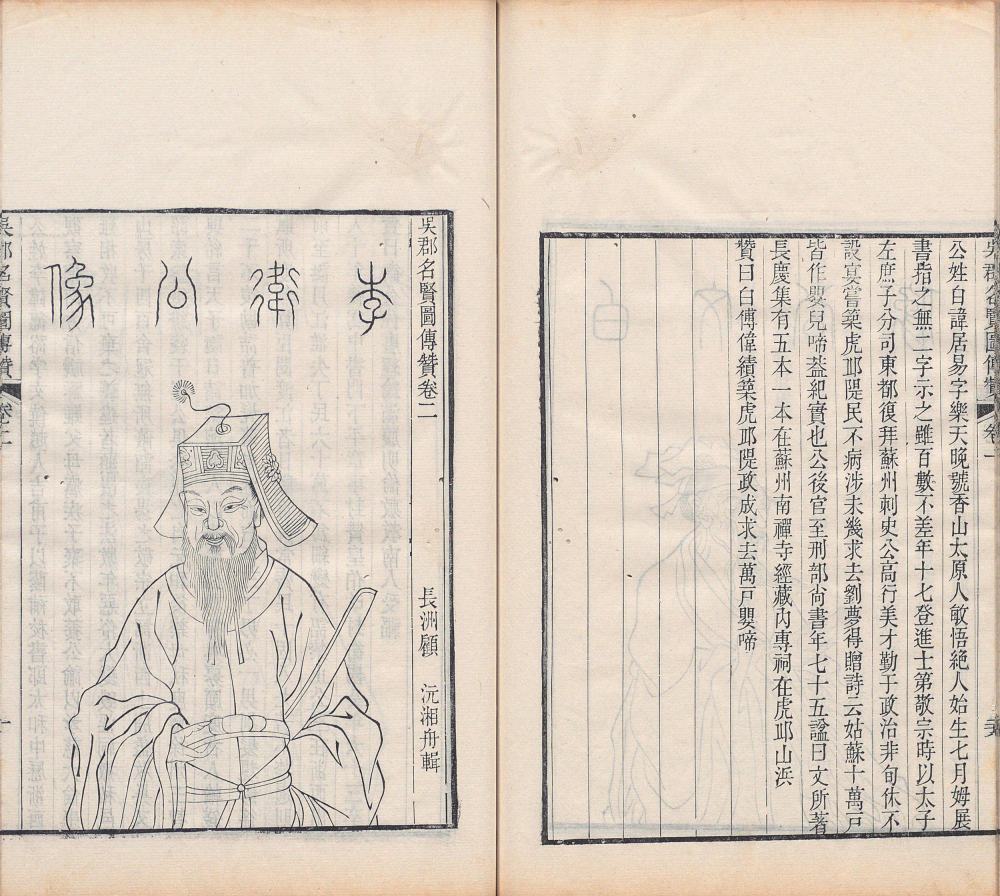 吳郡名賢圖傳贊 卷一
公姓白諱居易字樂天晚號香山太原人敏悟絕人始生七月姆展
書指之無二字示之雖百數不差年十七登進士第敬宗時以太子
左庶子分司東都復拜蘇州刺史公高行美才勤于政治非旬休不
設宴嘗築虎邱隄民不病涉未幾求去劉夢得贈詩云姑蘇十萬戸
皆作嬰兒啼葢紀實也公後官至刑部尙書年七十五謚曰文所著
長慶集有五本一本在蘇州南禪寺經藏內專祠在虎邱山浜
贊曰白傅偉績築虎邱隄政成求去萬戸嬰啼
吳郡名賢圖傳贊卷二
長洲顧 沅湘舟輯
李衛公像
吳郡名賢圖傳贊 卷二 一